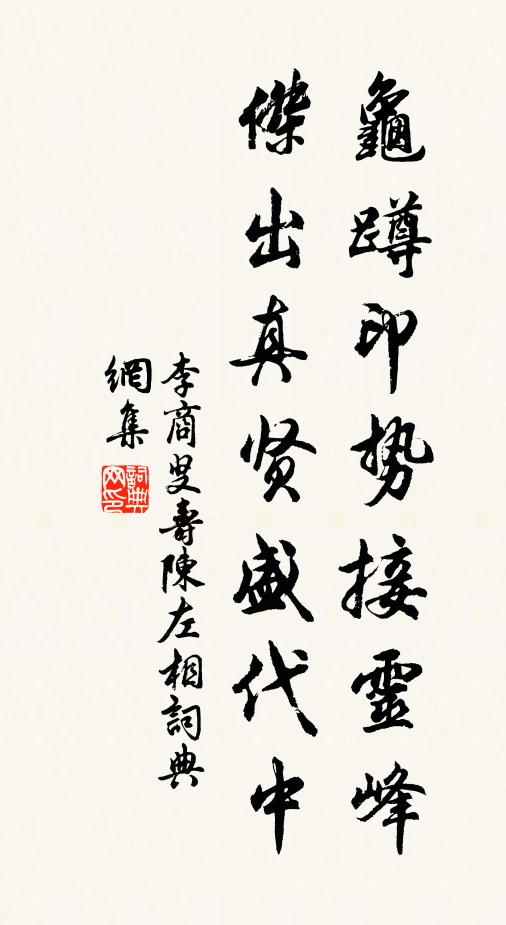 龜蹲印势接靈峰
傑出真贤盛代中
李商叟壽陳左相詞典
網集
詞典
网印